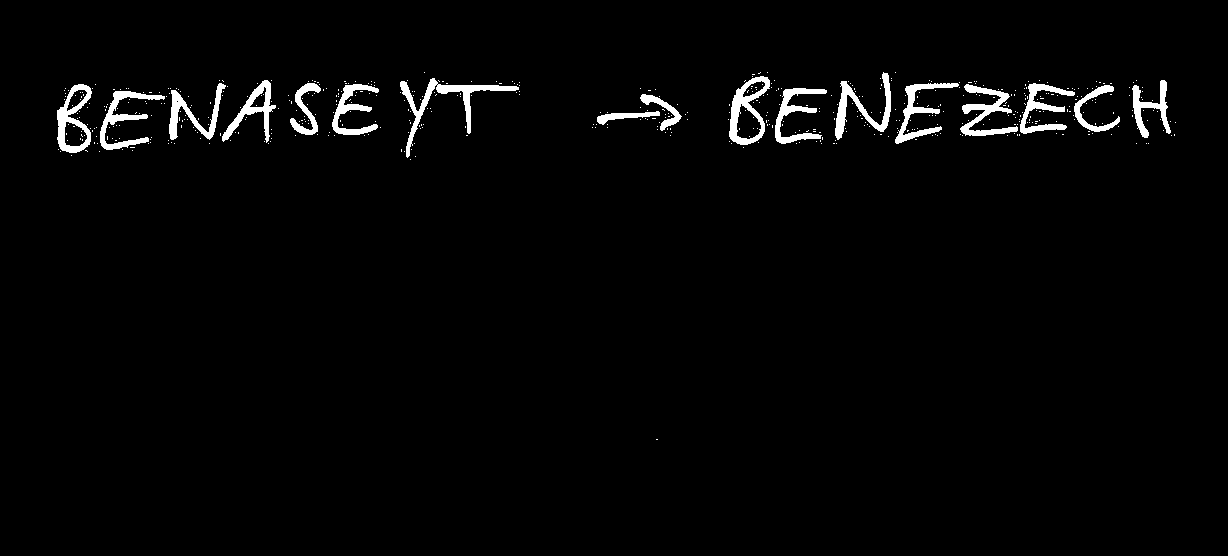 BENASEYT → BENEZECH